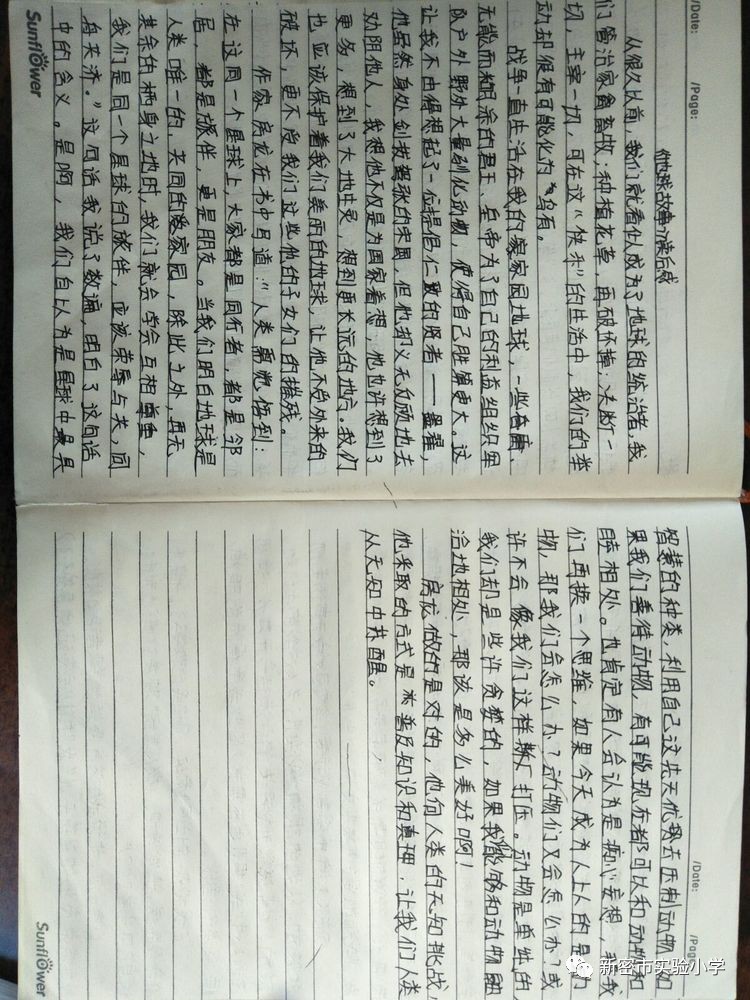 /Date: /Page:
《地球故事》读后感
从很久以前，我们就看似成为了地球的统治者，我
们圈治家禽畜牧；种植花草，再破坏掉；决断一
切，主宰一切，可在这“快乐”的生活中，我们的举
动却很有可能化为乌有。
战争一直生活在我的家家园地球，一些昏庸、
无能而糊涂的君王、皇帝为了自己的利益组织军
队户外野外大量驯化动物，使得自己胜算更大。这
让我不由得想起了一位提倡仁致的贤者——墨翟，
他虽然身处剑拔弩张的宋国，但他却义无反顾地去
劝阻他人，我想他不仅是为国家着想，他也许想到了
更多，想到了大地生灵，想到更长远的地方。我们
也应该保护着我们美丽的地球，让他不受外来的
破坏，更不受我们这些他的子女们的摧残。
作家房龙在书中写道：“人类需勉悟到：
在这同一个星球上，大家都是同行者，都是邻
居，都是旅伴，更是朋友。当我们明白地球是
人类唯一的，共同的家园，除此之外，再无
其余的栖身之地时，我们就会学会互相尊重，
我们是同一个星球的旅伴，应该荣辱与共，同
舟共济。”这句话我说了数遍，明白了这句话
中的含义。是啊，我们自以为是星球中最具
Sunflower
/Date: /Page:
智慧的种类，利用自己这先天优势去压制动物。如
果我们善待动物，有可能现在都可以和动物和
睦相处。也肯定有人会认为是痴心妄想，我
们再换一个思维，如果今天成为人上人的是动
物，那我们会怎么办？动物们又会怎么办？或
许不会像我们这样打压。动物是单纯的
我们却是些许贪婪的，如果我们能够和动物融
洽地相处，那该是多么美好啊！
房龙做的是对的，他向人类的无知挑战，
他采取的方式是普及知识和真理，让我们人类
从无知中苏醒。
Sunflower
新密市实验小学